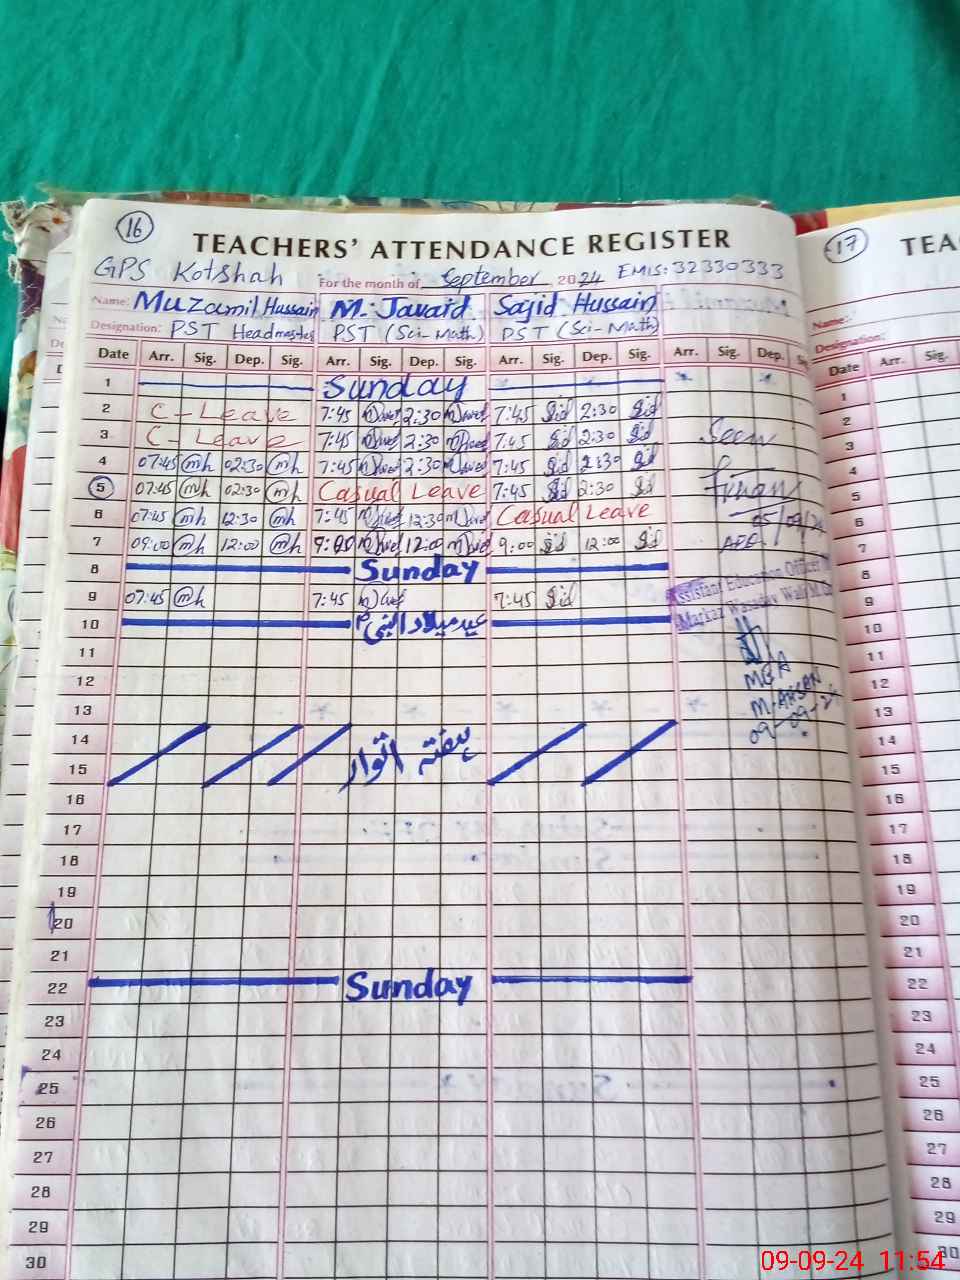 16
TEACHERS' ATTENDANCE REGISTER
GPS Kotshah For the month of September 2024 EMIS: 32330333
Name: Muzamil Hussain M. Javaid Sajid Hussain
Designation: PST Headmaster PST (Sci-Math) PST (Sci-Math)
Date Arr. Sig. Dep. Sig. Arr. Sig. Dep. Sig. Arr. Sig. Dep. Sig. Arr. Sig. Dep.
1 Sunday
2 C-Leave 7:45 2:30 7:45 2:30
3 C-Leave 7:45 2:30 7:45 2:30
4 07:45 mh 02:30 mh 7:45 2:30 7:45 2:30
5 07:45 mh 02:30 mh Casual Leave 7:45 2:30
6 07:45 mh 12:30 mh 7:45 12:30 Casual Leave
7 09:00 mh 12:00 mh 9:00 12:00 9:00 12:00
8 Sunday
9 07:45 mh 7:45 7:45
10 عید میلاد النبی
11
12
13
14 ہفتہ اتوار
15
16
17
18
19
20
21
22 Sunday
23
24
25
26
27
28
29
30
Seen
05/09/24
AEO
Assistant Education Officer
Markaz
MEA
M-AHSAN
09-09-24
17
TEA
Name:
Designation:
Date Arr. Sig.
1
2
3
4
5
6
7
8
9
10
11
12
13
14
15
16
17
18
19
20
21
22
23
24
25
26
27
28
29
30
09-09-24 11:54